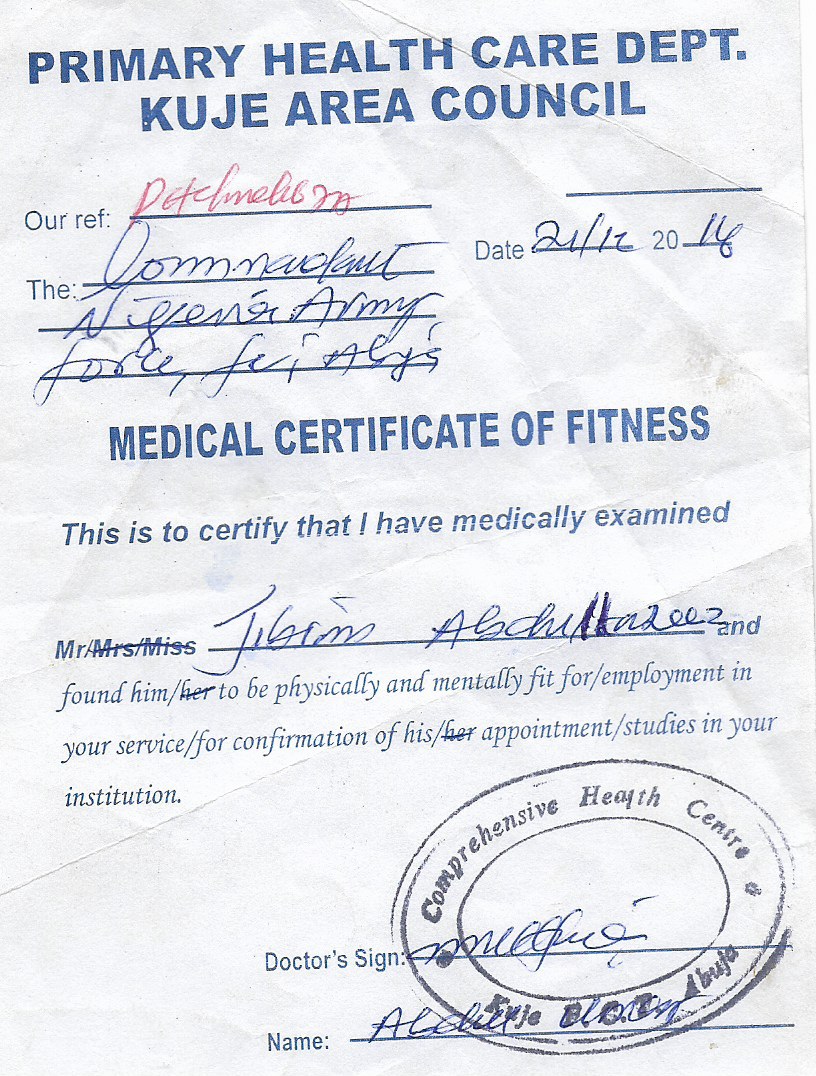 PRIMARY HEALTH CARE DEPT.
KUJE AREA COUNCIL
Our ref:
Date 21/12 20 16
The: Commandant
Nigeria Army
force,
MEDICAL CERTIFICATE OF FITNESS
This is to certify that I have medically examined
Mr/Mrs/Miss Jibrin and
found him/her to be physically and mentally fit for/employment in
your service/for confirmation of his/her appointment/studies in your
institution.
Comprehensive Health Centre
Doctor's Sign:
Kuje Abuja
Name: Abdul